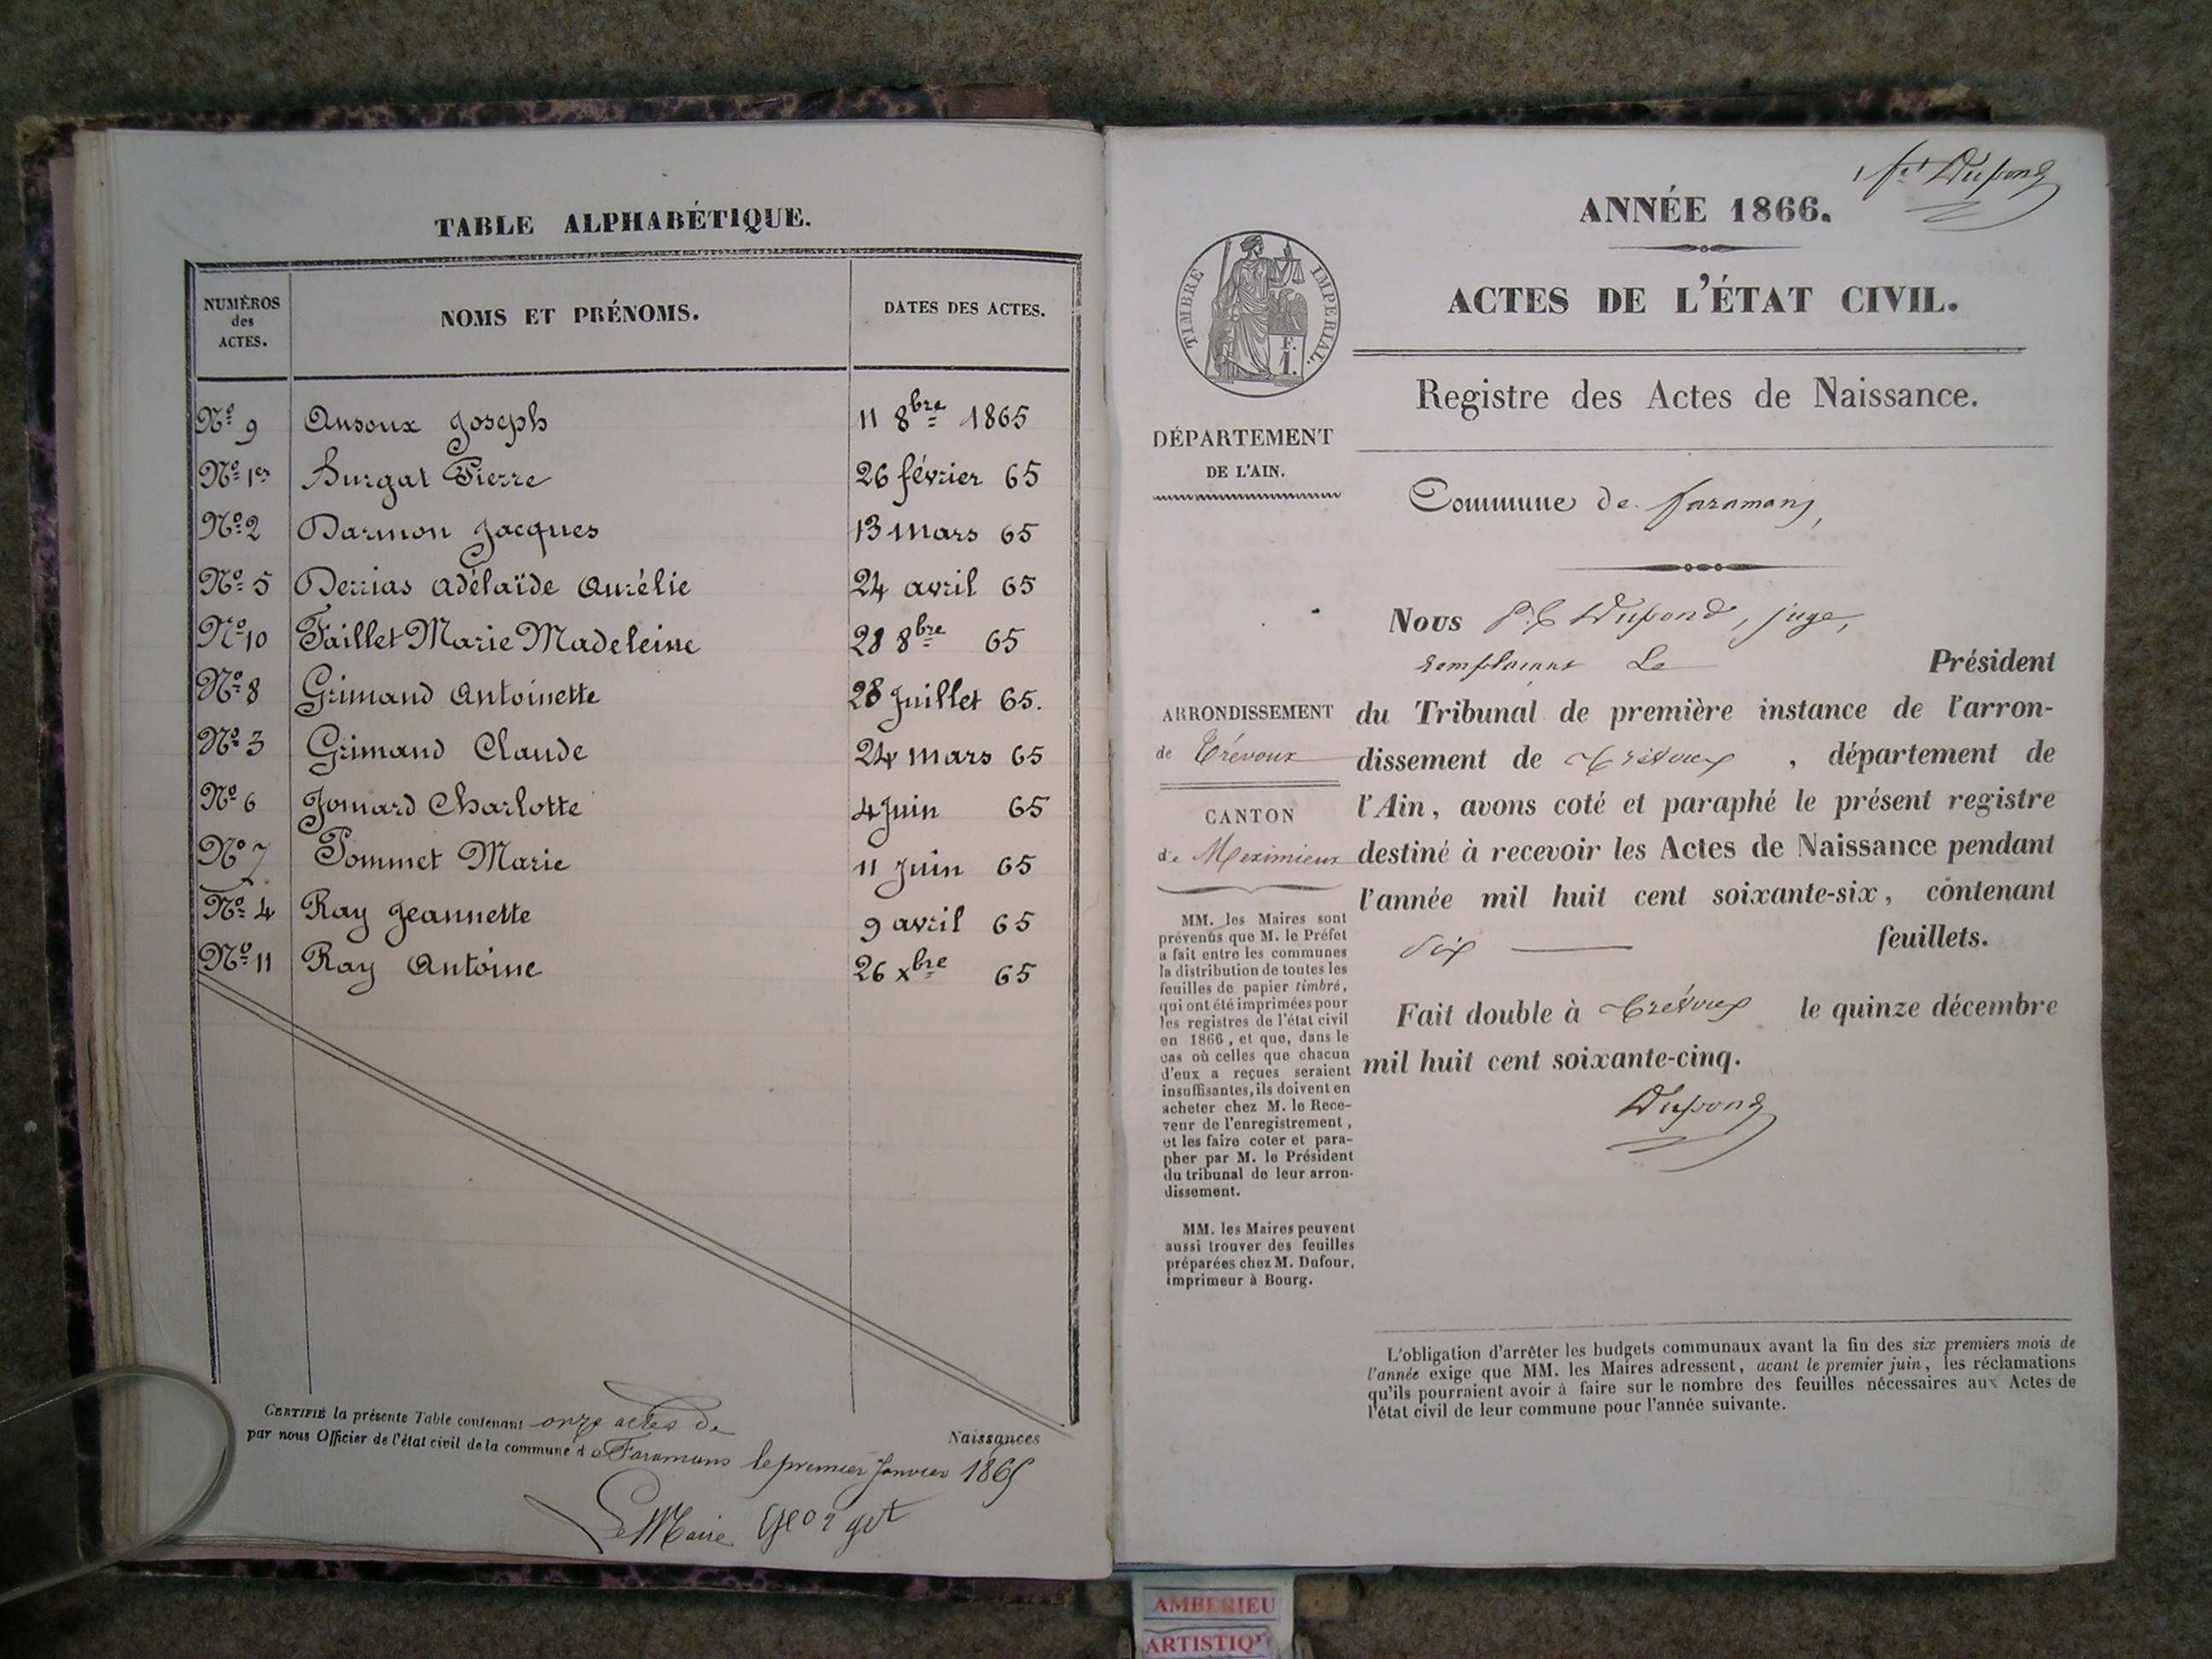 TABLE ALPHABÉTIQUE.
NUMÉROS
des
ACTES.
NOMS ET PRÉNOMS.
DATES DES ACTES.
Nº 9 Ansoux Joseph 11 8bre 1865
Nº 1er Burgat Pierre 26 février 65
Nº 2 Darmon Jacques 13 mars 65
Nº 5 Derrias Adélaïde Aurélie 24 avril 65
Nº 10 Faillet Marie Madeleine 28 8bre 65
Nº 8 Grimand Antoinette 28 Juillet 65.
Nº 3 Grimand Claude 24 mars 65
Nº 6 Jomard Charlotte 4 Juin 65
Nº 7 Pommet Marie 11 Juin 65
Nº 4 Ray Jeannette 9 avril 65
Nº 11 Ray Antoine 26 xbre 65
CERTIFIÉ la présente Table contenant onze actes de Naissances
par nous Officier de l'état civil de la commune de Faramans le premier Janvier
Le Maire Georget
1 ft Dupond
ANNÉE 1866.
ACTES DE L'ÉTAT CIVIL.
TIMBRE IMPERIAL.
F.
1.
Registre des Actes de Naissance.
DÉPARTEMENT
DE L'AIN.
Commune de Faramans,
Nous Dupond, juge,
remplaçant Le Président
ARRONDISSEMENT
de Trévoux
CANTON
de Meximieux
du Tribunal de première instance de l'arron-
dissement de Trévoux, département de
l'Ain, avons coté et paraphé le présent registre
destiné à recevoir les Actes de Naissance pendant
l'année mil huit cent soixante-six, contenant
Six feuillets.
Fait double à Trévoux le quinze décembre
mil huit cent soixante-cinq.
Dupond
MM. les Maires sont
prévenus que M. le Préfet
a fait entre les communes
la distribution de toutes les
feuilles de papier timbré,
qui ont été imprimées pour
les registres de l'état civil
en 1866, et que, dans le
cas où celles que chacun
d'eux a reçues seraient
insuffisantes, ils doivent en
acheter chez M. le Rece-
veur de l'enregistrement,
et les faire coter et para-
pher par M. le Président
du tribunal de leur arron-
dissement.
MM. les Maires peuvent
aussi trouver des feuilles
préparées chez M. Dufour,
imprimeur à Bourg.
L'obligation d'arrêter les budgets communaux avant la fin des six premiers mois de
l'année exige que MM. les Maires adressent, avant le premier juin, les réclamations
qu'ils pourraient avoir à faire sur le nombre des feuilles nécessaires aux Actes de
l'état civil de leur commune pour l'année suivante.
AMBERIEU
ARTISTIQ